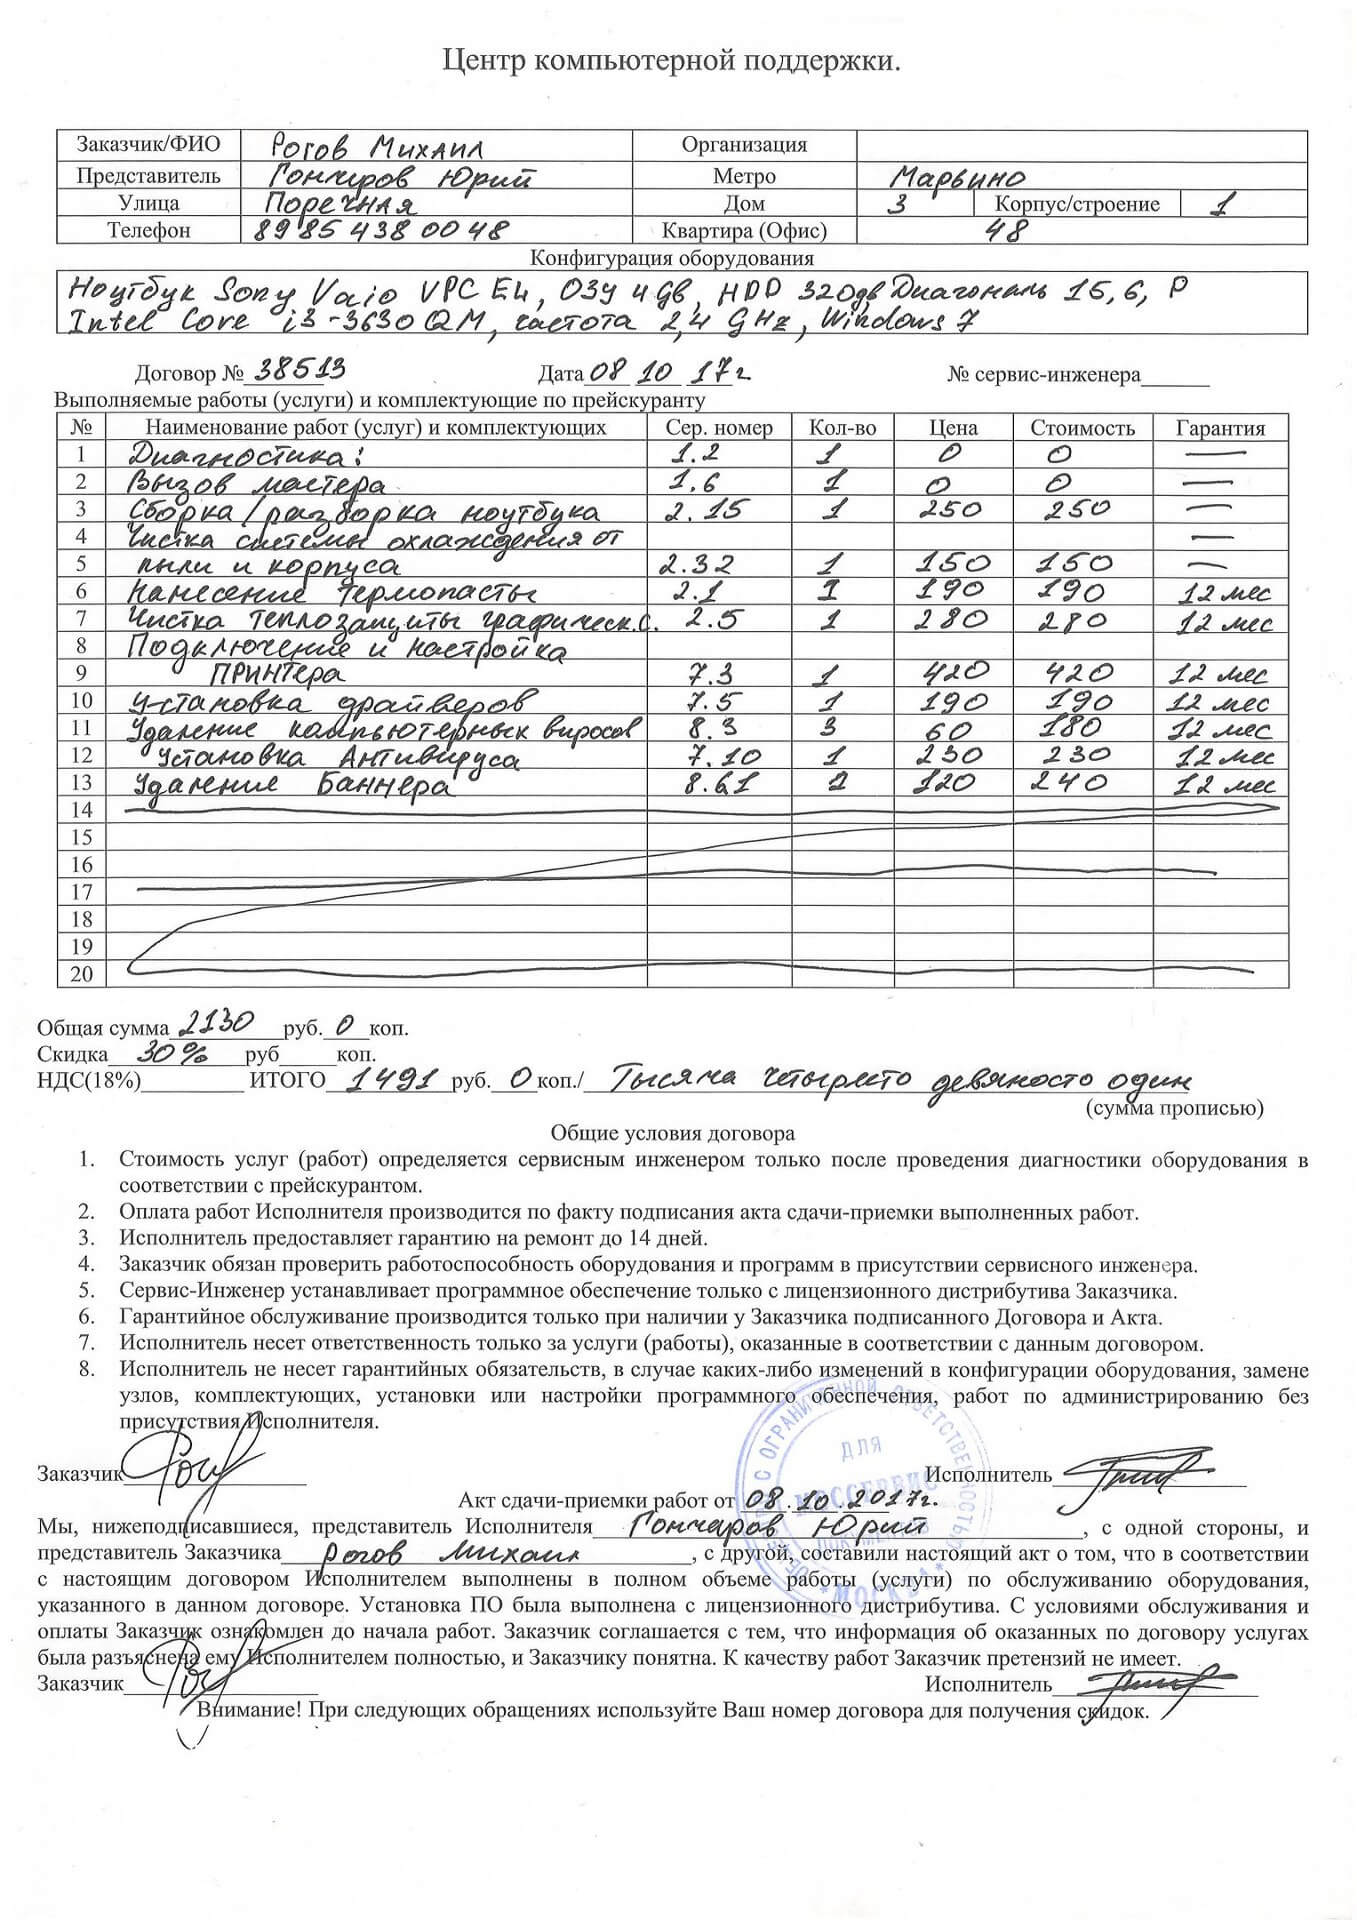 Центр компьютерной поддержки.
Заказчик/ФИО Рогов Михаил Организация
Представитель Гончаров Юрий Метро Марьино
Улица Поречная Дом 3 Корпус/строение 1
Телефон 8 985 438 00 48 Квартира (Офис) 48
Конфигурация оборудования
Ноутбук Sony Vaio VPC E4, ОЗУ 4 Gb, HDD 320gb Диагональ 15,6, P
Intel Core i3-3630 QM, частота 2,4 GHz, Windows 7
Договор № 38513 Дата 08 10 17г № сервис-инженера
Выполняемые работы (услуги) и комплектующие по прейскуранту
№ Наименование работ (услуг) и комплектующих Сер. номер Кол-во Цена Стоимость Гарантия
1 Диагностика: 1.2 1 0 0 —
2 Вызов мастера 1.6 1 0 0 —
3 Сборка/разборка ноутбука 2.15 1 250 250 —
4 Чистка системы охлаждения от —
5 пыли и корпуса 2.32 1 150 150 —
6 Нанесение термопасты 2.1 1 190 190 12 мес
7 Чистка теплозащиты графическ.с. 2.5 1 280 280 12 мес
8 Подключение и настройка
9 ПРИНТЕРА 7.3 1 420 420 12 мес
10 Установка драйверов 7.5 1 190 190 12 мес
11 Удаление компьютерных вирусов 8.3 3 60 180 12 мес
12 Установка Антивируса 7.10 1 230 230 12 мес
13 Удаление Баннера 8.61 2 120 240 12 мес
14
15
16
17
18
19
20
Общая сумма 2130 руб. 0 коп.
Скидка 30% руб коп.
НДС(18%) ИТОГО 1491 руб. 0 коп./ Тысяча четыресто девяносто один
(сумма прописью)
Общие условия договора
1. Стоимость услуг (работ) определяется сервисным инженером только после проведения диагностики оборудования в
соответствии с прейскурантом.
2. Оплата работ Исполнителя производится по факту подписания акта сдачи-приемки выполненных работ.
3. Исполнитель предоставляет гарантию на ремонт до 14 дней.
4. Заказчик обязан проверить работоспособность оборудования и программ в присутствии сервисного инженера.
5. Сервис-Инженер устанавливает программное обеспечение только с лицензионного дистрибутива Заказчика.
6. Гарантийное обслуживание производится только при наличии у Заказчика подписанного Договора и Акта.
7. Исполнитель несет ответственность только за услуги (работы), оказанные в соответствии с данным договором.
8. Исполнитель не несет гарантийных обязательств, в случае каких-либо изменений в конфигурации оборудования, замене
узлов, комплектующих, установки или настройки программного обеспечения, работ по администрированию без
присутствия Исполнителя.
Заказчик Исполнитель
ДЛЯ
МОССЕРВИС
ДОКУМЕНТОВ
* МОСКВА *
Акт сдачи-приемки работ от 08.10.2017г.
Мы, нижеподписавшиеся, представитель Исполнителя Гончаров Юрий, с одной стороны, и
представитель Заказчика Рогов Михаил, с другой, составили настоящий акт о том, что в соответствии
с настоящим договором Исполнителем выполнены в полном объеме работы (услуги) по обслуживанию оборудования,
указанного в данном договоре. Установка ПО была выполнена с лицензионного дистрибутива. С условиями обслуживания и
оплаты Заказчик ознакомлен до начала работ. Заказчик соглашается с тем, что информация об оказанных по договору услугах
была разъяснена ему Исполнителем полностью, и Заказчику понятна. К качеству работ Заказчик претензий не имеет.
Заказчик Исполнитель
Внимание! При следующих обращениях используйте Ваш номер договора для получения скидок.